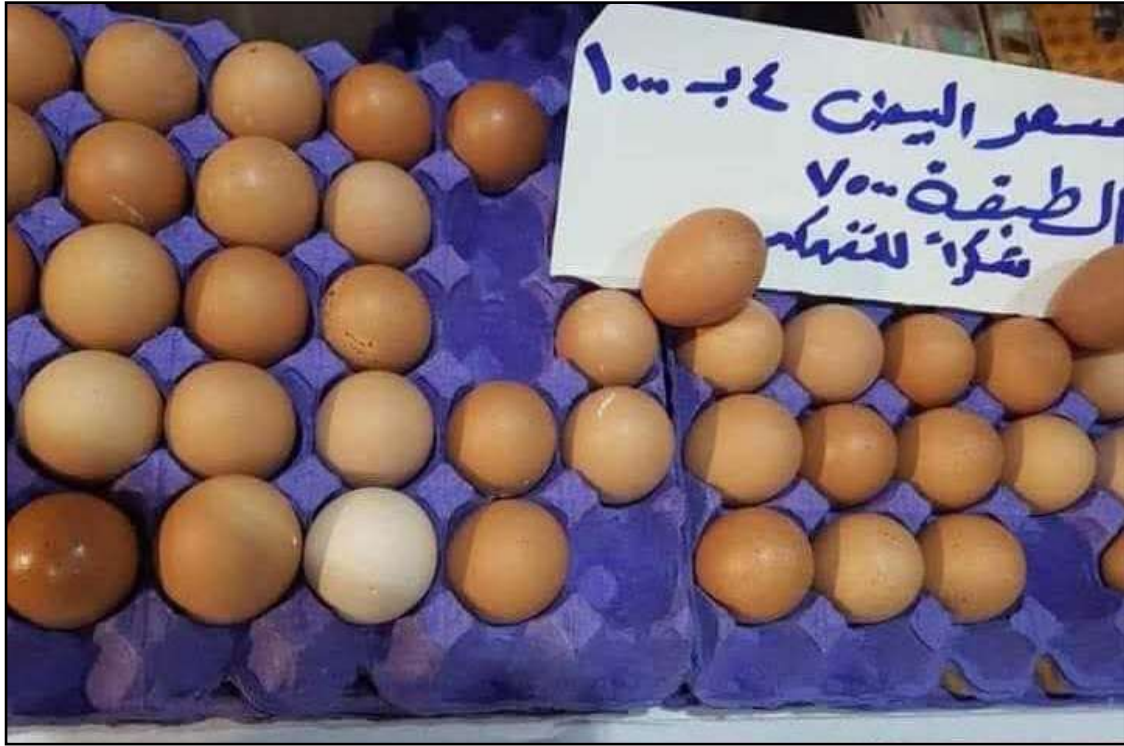 سعر البيض ٤ بـ ١٠٠٠
الطبقة ٧٥٠٠
شكراً للتفهمكم